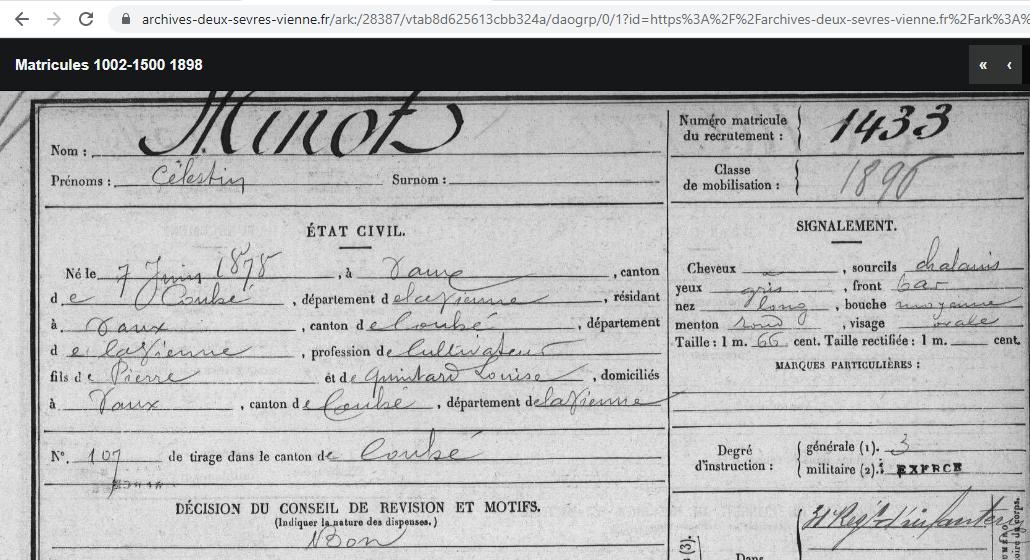 archives-deux-sevres-vienne.fr/ark:/28387/vtab8d625613cbb324a/daogrp/0/1?id=https%3A%2F%2Farchives-deux-sevres-vienne.fr%2Fark%3A%
Matricules 1002-1500 1898
« ‹
Nom : Minot
Prénoms : Célestin Surnom :
Numéro matricule du recrutement : 1433
Classe de mobilisation : 1896
ÉTAT CIVIL.
Né le 7 Juin 1878, à Vaux, canton
de Couhé, département de la Vienne, résidant
à Vaux, canton de Couhé, département
de la Vienne, profession de Cultivateur
fils de Pierre et de Quintard Louise, domiciliés
à Vaux, canton de Couhé, département de la Vienne
SIGNALEMENT.
Cheveux , sourcils chatains
yeux gris, front bas
nez long, bouche moyenne
menton rond, visage ovale
Taille : 1 m. 66 cent. Taille rectifiée : 1 m. cent.
MARQUES PARTICULIÈRES :
N°. 107 de tirage dans le canton de Couhé
Degré d'instruction : générale (1). 3
militaire (2). EXERCE
DÉCISION DU CONSEIL DE REVISION ET MOTIFS.
(Indiquer la nature des dispenses.)
Bon
Régt d'infanterie
(3).
Dans
NUMÉRO